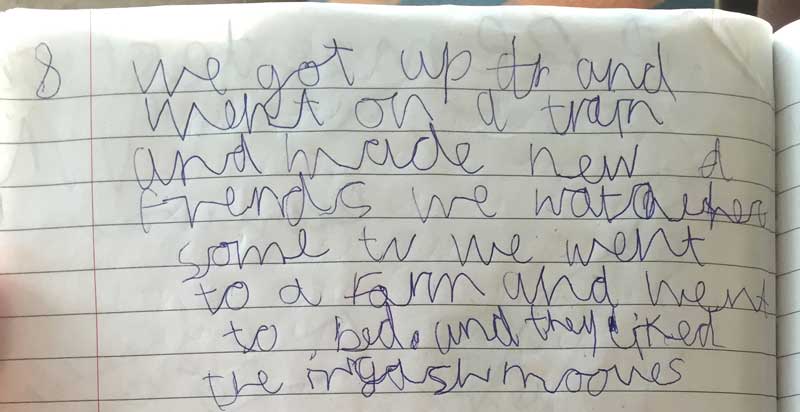 8 we got up and
went on a train
and made new d
frends we
some tv we went
to a farm and went
to bed. and they liked
the mooves